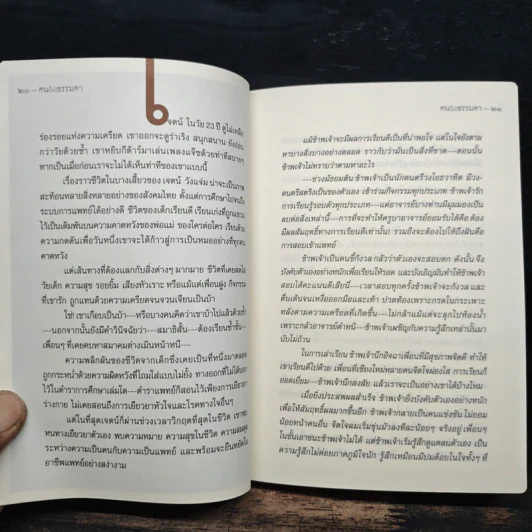 ๒๐ — คนไม่ธรรมดา
เจตน์ ในวัย 23 ปี ดูไม่เหลือ
ร่องรอยแห่งความเครียด เขาออกจะดูร่าเริง สนุกสนาน ยังอ่อน
กว่าวัยด้วยซ้ำ เขาหยิบกีต้าร์มาเล่นเพลงแจ๊ซด้วยท่าทีสบายๆ
หากเป็นเมื่อก่อนเราจะไม่ได้เห็นท่าทีของเขาแบบนี้
เรื่องราวชีวิตในบางเสี้ยวของ เจตน์ วังแจ่ม น่าจะเป็นภาพ
สะท้อนหลายสิ่งหลายอย่างของสังคมไทย ตั้งแต่การศึกษาไปจนถึง
ระบบการแพทย์ได้อย่างดี ชีวิตของเด็กเรียนดี เรียนเก่งที่ถูกแขวน
ไว้เป็นเดิมพันบนความคาดหวังของพ่อแม่ ของใครต่อใคร เรียนด้วย
ความกดดันเพื่อวันหนึ่งเขาจะได้ก้าวสู่การเป็นหมออย่างที่ทุกคน
คาดหวัง
แต่เส้นทางที่ต้องแลกกับสิ่งต่างๆ มากมาย ชีวิตที่เคยสดใส
วัยเด็ก ความสุข รอยยิ้ม เสียงหัวเราะ หรือแม้แต่เพื่อนฝูง กิจกรรม
ที่เขารัก ถูกแทนด้วยความเครียดจนจวนเจียนเป็นบ้า
ใช่! เขาเกือบเป็นบ้า---หรือบางคนคิดว่าเขาบ้าไปแล้วด้วยซ้ำ
---นอกจากนั้นยังมีคำวินิจฉัยว่า---สมาธิสั้น---ต้องเรียนซ้ำชั้น---
เพื่อนๆ ที่เคยคบหาสมาคมต่างเมินหน้าหนี---
ความพลิกผันของชีวิตจากเด็กซึ่งเคยเป็นที่หนึ่งมาตลอด
ถูกกระหน่ำด้วยความผิดหวังที่โถมใส่แบบไม่ยั้ง ทางออกที่ไม่ได้บอก
ไว้ในตำราการศึกษาเล่มใด---ตำราแพทย์ก็สอนไว้เพียงการเยียวยา
ร่างกาย ไม่เคยสอนถึงการเยียวยาหัวใจและโรคทางใจอื่นๆ
แต่ในที่สุดเจตน์ก็ผ่านช่วงเวลาวิกฤตที่สุดในชีวิต เขาพบ
หนทางเยียวยาตัวเอง พบความหมาย ความสุขในชีวิต ความสมดุล
ระหว่างความเป็นคนกับความเป็นแพทย์ และพร้อมจะยืนหยัดใน
อาชีพแพทย์อย่างสง่างาม
คนไม่ธรรมดา — ๒๑
แม้ข้าพเจ้าจะมีผลการเรียนดีเป็นที่น่าพอใจ แต่ในใจยังตาม
หาบางสิ่งบางอย่างตลอด ราวกับว่ามันเป็นสิ่งที่ขาด---ตอนนั้น
ข้าพเจ้าไม่ทราบว่าตามหาอะไร
---ช่วงมัธยมต้น ข้าพเจ้าเป็นนักดนตรีวงโยธวาทิต มีวง
ดนตรีสตริงเป็นของตัวเอง เข้าร่วมกิจกรรมทุกประเภท ข้าพเจ้ารัก
การเรียนรู้รอบตัวทุกประเภท---แต่อาจารย์บางท่านมีมุมมองเป็น
ลบต่อสิ่งเหล่านี้---การที่จะทำให้ครูบาอาจารย์ยอมรับได้คือ ต้อง
มีผลสัมฤทธิ์ทางการเรียนดีเท่านั้น! รวมถึงจะต้องไปให้ถึงฝันคือ
การสอบเข้าแพทย์
ข้าพเจ้าเป็นคนขี้กังวล กลัวว่าตัวเองจะสอบตก ดังนั้น จึง
บังคับตัวเองอย่างหนักเพื่อเรียนให้รอด และบังเอิญมันทำให้ข้าพเจ้า
สอบได้คะแนนดีเสียนี่---เวลาสอบทุกครั้งข้าพเจ้าจะกังวล และ
ตื่นเต้นจนเหงื่อออกมือและเท้า ปวดท้องเพราะกรดในกระเพาะ
หลั่งตามความเครียดที่เกิดขึ้น---ไม่กล้าแม้แต่จะลุกไปห้องน้ำ
เพราะกลัวอาจารย์ตำหนิ---ข้าพเจ้าเผชิญกับความรู้สึกเหล่านั้นมา
นับไม่ถ้วน
ในการเล่าเรียน ข้าพเจ้านึกอิจฉาเพื่อนที่มีสุขภาพจิตดี ทำให้
เขาเรียนดีไปด้วย เพื่อนที่เชียงใหม่หลายคนจิตใจผ่องใส การเรียนก็
ยอดเยี่ยม---ข้าพเจ้านึกสงสัย แล้วเราจะเป็นอย่างเขาได้บ้างไหม
เมื่อยิ่งประสพผลสำเร็จ ข้าพเจ้ายิ่งบังคับตัวเองอย่างหนัก
เพื่อให้สัมฤทธิ์ผลมากขึ้นอีก ข้าพเจ้า กลายเป็นคนแข่งขัน ไม่ยอม
น้อยหน้าคนอื่น จิตใจผมเริ่มขุ่นมัวลงทีละน้อยๆ จริงอยู่ เพื่อนๆ
ในชั้นเอาชนะข้าพเจ้าไม่ได้ แต่ข้าพเจ้าเริ่มรู้สึกดูแคลนตัวเอง เป็น
ความรู้สึกไม่ค่อยภาคภูมิใจนัก รู้สึกเหมือนมีปมด้อยในใจทั้งๆ ที่